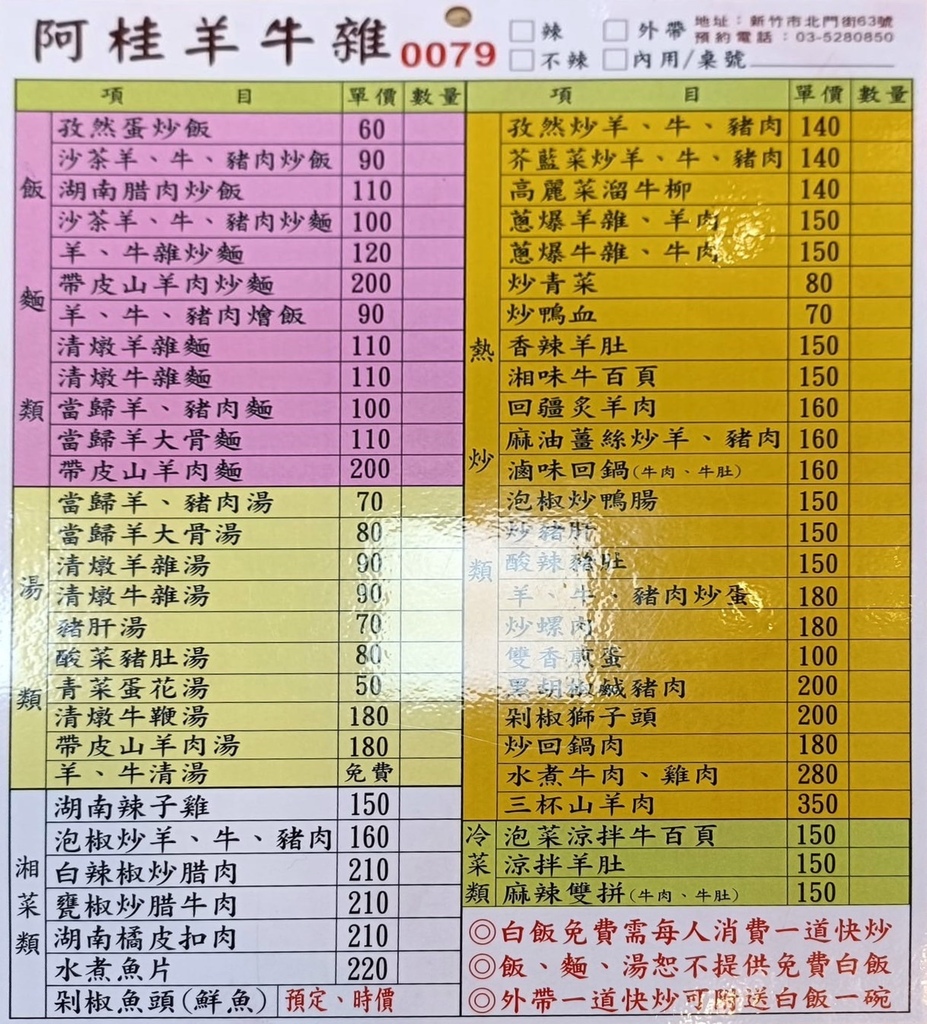 阿桂羊牛雜 0079 □辣 □外帶 地址：新竹市北門街63號
□不辣 □內用/桌號 預約電話：03-5280850
項目 單價 數量
飯麵類
孜然蛋炒飯 60
沙茶羊、牛、豬肉炒飯 90
湖南腊肉炒飯 110
沙茶羊、牛、豬肉炒麵 100
羊、牛雜炒麵 120
帶皮山羊肉炒麵 200
羊、牛、豬肉燴飯 90
清燉羊雜麵 110
清燉牛雜麵 110
當歸羊、豬肉麵 100
當歸羊大骨麵 110
帶皮山羊肉麵 200
湯類
當歸羊、豬肉湯 70
當歸羊大骨湯 80
清燉羊雜湯 90
清燉牛雜湯 90
豬肝湯 70
酸菜豬肚湯 80
青菜蛋花湯 50
清燉牛鞭湯 180
帶皮山羊肉湯 180
羊、牛清湯 免費
湘菜類
湖南辣子雞 150
泡椒炒羊、牛、豬肉 160
白辣椒炒腊肉 210
甕椒炒腊牛肉 210
湖南橘皮扣肉 210
水煮魚片 220
剁椒魚頭(鮮魚) 預定、時價
項目 單價 數量
熱炒類
孜然炒羊、牛、豬肉 140
芥藍菜炒羊、牛、豬肉 140
高麗菜溜牛柳 140
蔥爆羊雜、羊肉 150
蔥爆牛雜、牛肉 150
炒青菜 80
炒鴨血 70
香辣羊肚 150
湘味牛百頁 150
回疆炙羊肉 160
麻油薑絲炒羊、豬肉 160
滷味回鍋(牛肉、牛肚) 160
泡椒炒鴨腸 150
炒豬肝 150
酸辣豬肚 150
羊、牛、豬肉炒蛋 180
炒螺肉 180
雙香煎蛋 100
黑胡椒鹹豬肉 200
剁椒獅子頭 200
炒回鍋肉 180
水煮牛肉、雞肉 280
三杯山羊肉 350
冷菜類
泡菜涼拌牛百頁 150
涼拌羊肚 150
麻辣雙拼(牛肉、牛肚) 150
◎白飯免費需每人消費一道快炒
◎飯、麵、湯恕不提供免費白飯
◎外帶一道快炒可附送白飯一碗